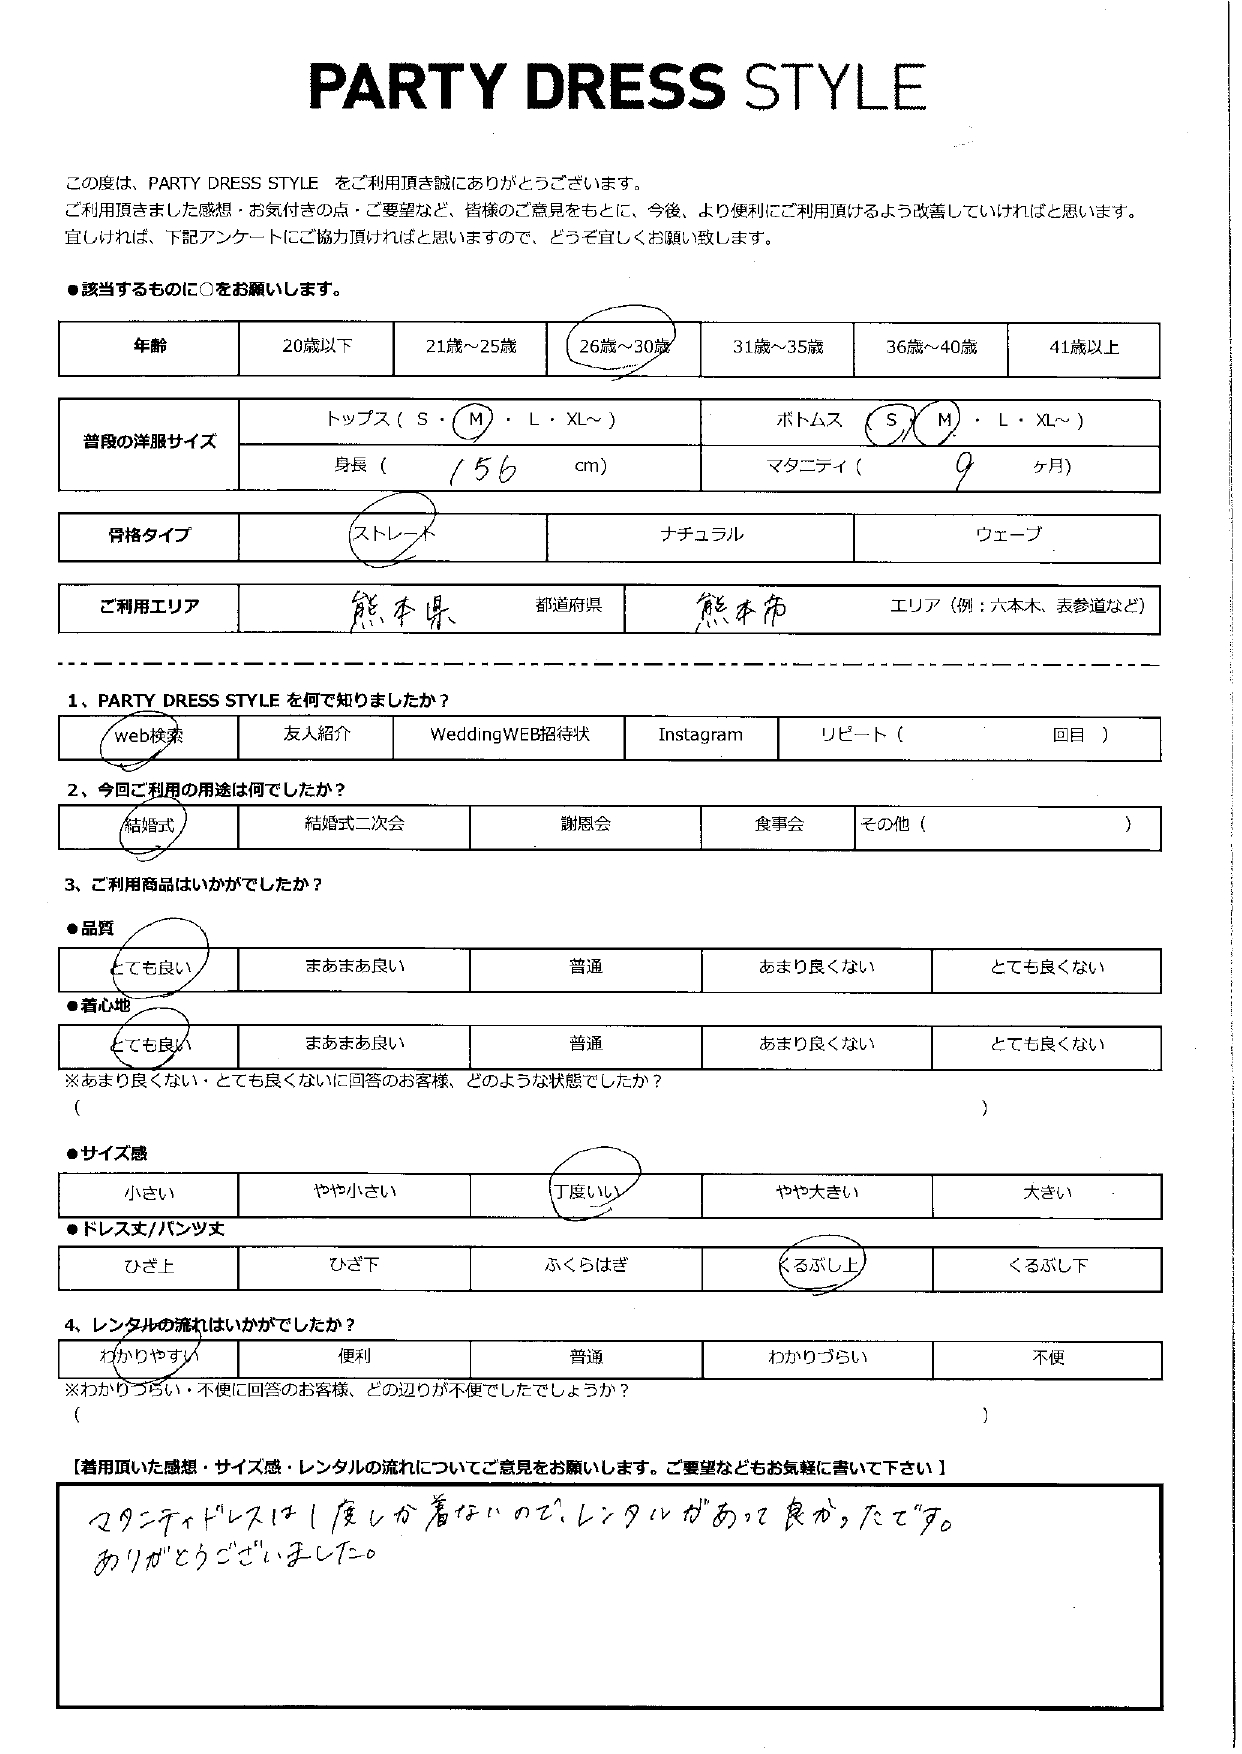 PARTY DRESS STYLE
この度は、PARTY DRESS STYLE をご利用頂き誠にありがとうございます。
ご利用頂きました感想・お気付きの点・ご要望など、皆様のご意見をもとに、今後、より便利にご利用頂けるよう改善していければと思います。
宜しければ、下記アンケートにご協力頂ければと思いますので、どうぞ宜しくお願い致します。
●該当するものに○をお願いします。
年齢 20歳以下 21歳～25歳 26歳～30歳 31歳～35歳 36歳～40歳 41歳以上
普段の洋服サイズ トップス ( S ・ M ・ L ・ XL～ ) ボトムス ( S ・ M ・ L ・ XL～ )
身長 ( 156 cm) マタニティ ( 9 ヶ月)
骨格タイプ ストレート ナチュラル ウェーブ
ご利用エリア 熊本県 都道府県 熊本市 エリア（例：六本木、表参道など）
1、PARTY DRESS STYLE を何で知りましたか？
web検索 友人紹介 WeddingWEB招待状 Instagram リピート ( 回目 )
2、今回ご利用の用途は何でしたか？
結婚式 結婚式二次会 謝恩会 食事会 その他 ( )
3、ご利用商品はいかがでしたか？
●品質
とても良い まあまあ良い 普通 あまり良くない とても良くない
●着心地
とても良い まあまあ良い 普通 あまり良くない とても良くない
※あまり良くない・とても良くないに回答のお客様、どのような状態でしたか？
( )
●サイズ感
小さい やや小さい 丁度いい やや大きい 大きい
●ドレス丈/パンツ丈
ひざ上 ひざ下 ふくらはぎ くるぶし上 くるぶし下
4、レンタルの流れはいかがでしたか？
わかりやすい 便利 普通 わかりづらい 不便
※わかりづらい・不便に回答のお客様、どの辺りが不便でしたでしょうか？
( )
【着用頂いた感想・サイズ感・レンタルの流れについてご意見をお願いします。ご要望などもお気軽に書いて下さい】
マタニティドレスは1度しか着ないので、レンタルがあって良かったです。
ありがとうございました。